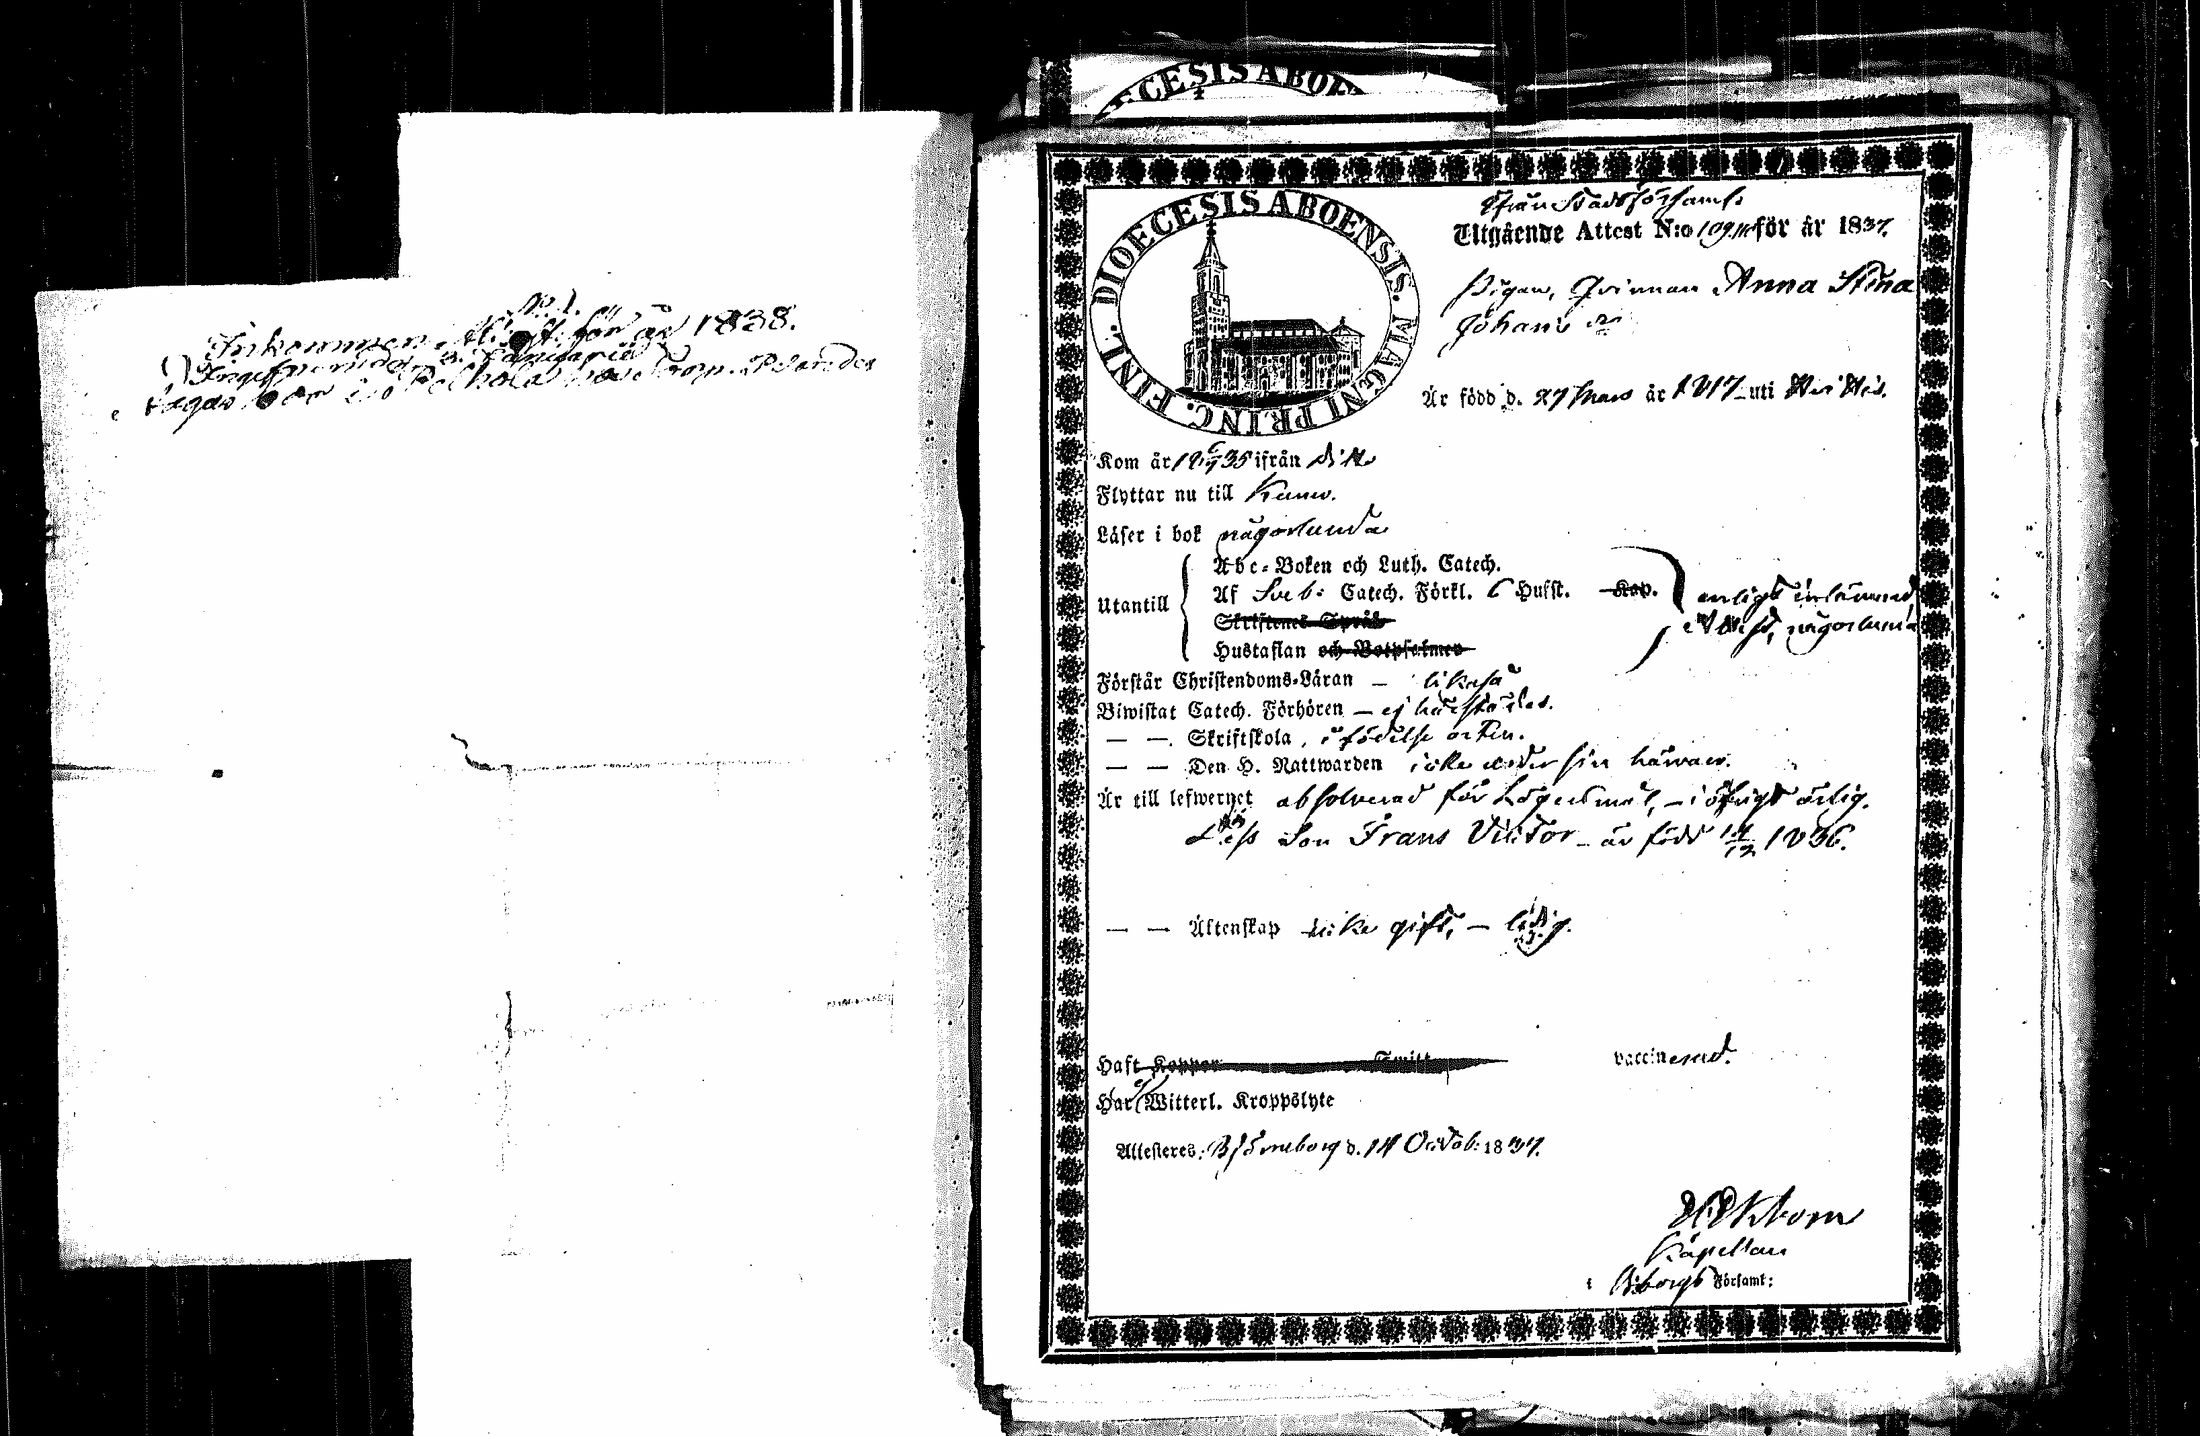 N:o 1.
Inkommen Attest för år 1838.
Januarii
DIOECESIS ABOENSIS
DIOECESIS ABOENSIS. MAGNI PRINC. FINL.
Från Stadsförsaml:
Utgående Attest N:o för år 1837.
Pigan, Qvinnan Anna Stina
Johans
Är född d. 27 Mars år 1817 uti
Kom år 18 35 ifrån
Flyttar nu till Kumo.
Läser i bok någorlunda
Utantill
Abc-Boken och Luth. Catech.
Af Sveb: Catech. Förkl. 6 Husst. Kap.
Skriftenes Språk
Hustaflan och Botpsalmer
enligt inlämnad
Attest, någorlunda
Förstår Christendoms-Läran — likaså
Biwistat Catech. Förhören — ej härstädes.
— — Skriftskola, i födelse orten.
— — Den H. Nattwarden icke under sin härvaro.
Är till lefwernet absolverad för Lägersmål, – i öfrigt ärlig.
Dess Son Frans Victor – är född 1836.
— — Äktenskap icke gift, – ledig.
Haft Koppor Smitt vaccinerad.
Har ej Witterl. Kroppslyte
Attesteres: Björneborg d. 14 Octob: 1837.
Kapellan
i B:borgs Församl: